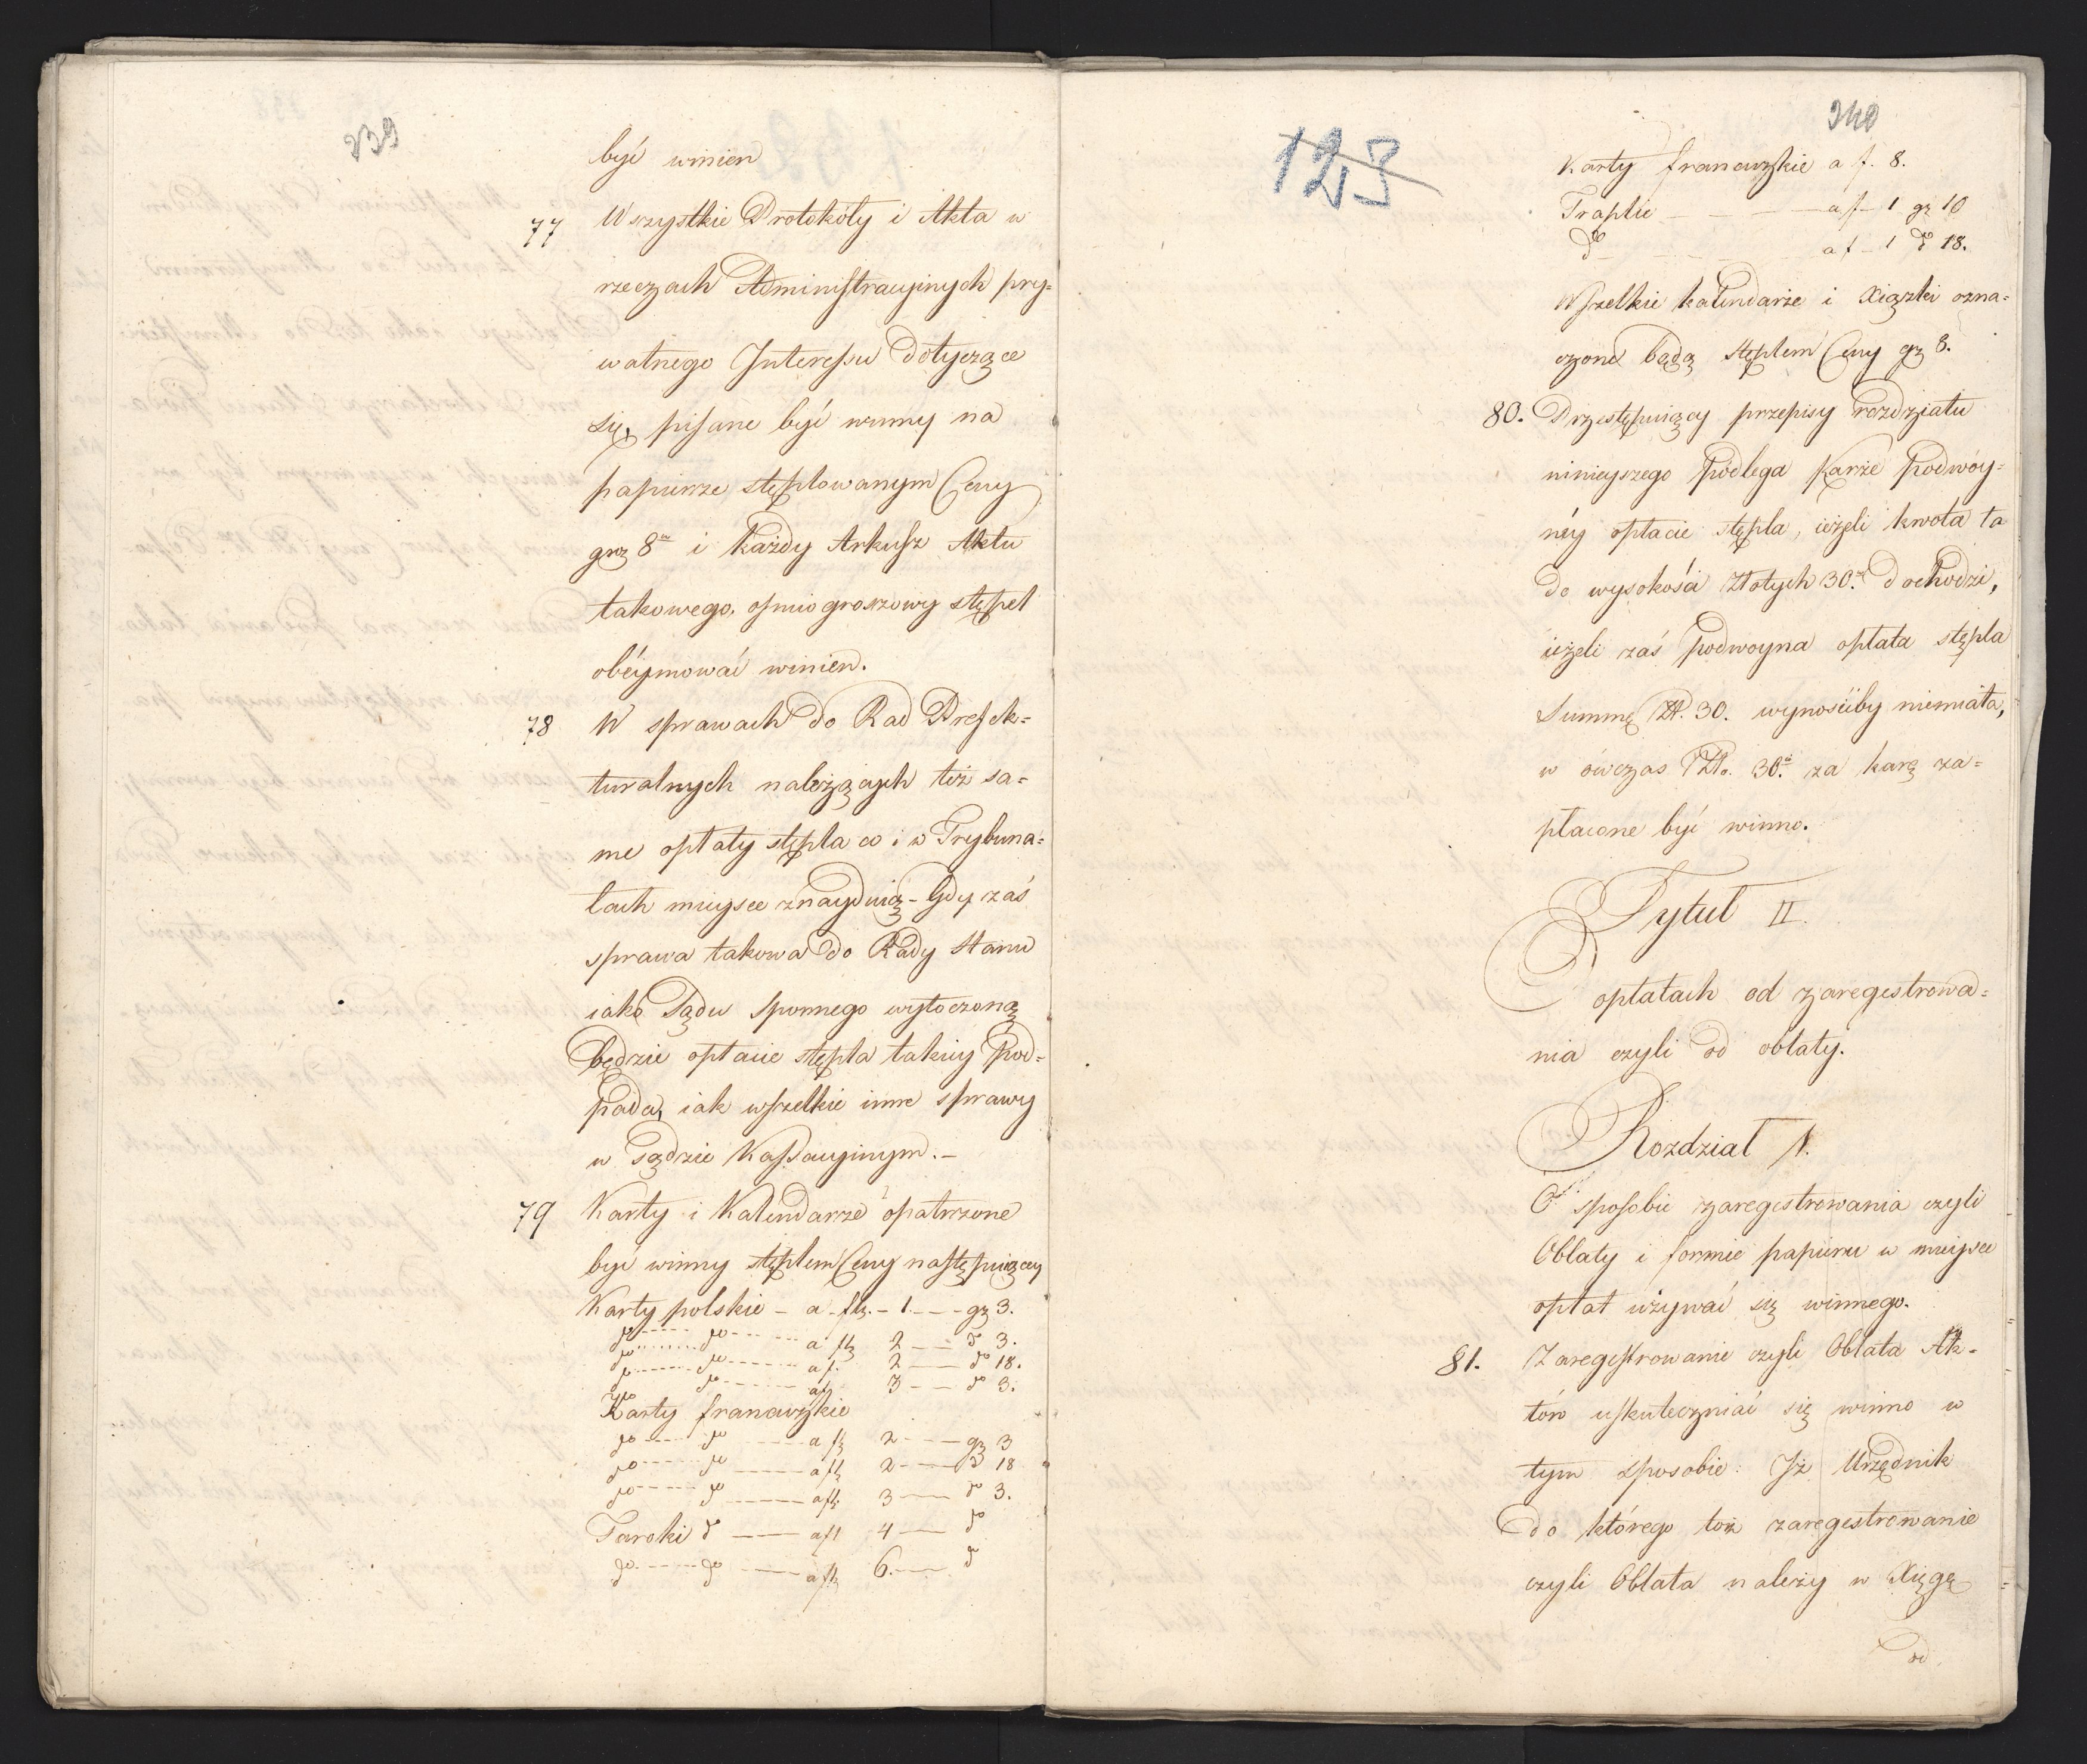 239
być winien
77 Wszystkie Protokóły i Akta w
rzeczach Administracyinych pry=
watnego Interessu dotyczące
się, pisane być winny na
papierze stęplowanym Ceny
grz 8 i każdy Arkusz Aktu
takowego, osmiogroszowy stępel
obéymować winien.
78 W sprawach do Rad Prefek=
turalnych należących też sa=
me opłaty stępla co i w Trybuna=
łach mieysce znayduią - Gdy zaś
sprawa takowa do Rady Stanu
iako Sądu spornego wytoczoną
będzie opłacie stępla takiey pod=
pada, iak wszelkie inne sprawy
w Sądzie Kassacyinym. -
79 Karty i Kalendarze opatrzone
być winny stęplem Ceny następuiącey
Karty polskie - a fl. - 1 - - - gr 3.
do do a fl 2 - - do 3.
do do a f. 2 - do 18.
do do a f 3 - - do 3.
Karty francuzkie
do do a fl 2 - - gr 3
do do a fl 2 - - do 18
do do a fl 3 - do 3.
Taroki do - a fl 4 - do
do do - a fl 6. - do
123
240
Karty francuzkie a f. 8.
Traplie - - - a f - 1 gr 10
do a f - 1 do 18.
Wszelkie kalendarze i Xiązki ozna=
czone będą stęplem Ceny gr 8.
80. Przestępuiący przepisy rozdziału
ninieyszego podlega karze podwóy=
néy opłacie stępla, ieżeli kwota ta
do wysokości złotych 30. dochodzi,
ieżeli zaś podwoyna opłata stępla
Summę Zł. 30. wynosiłby niemiała,
w ówczas Zł. 30. za karę za=
płacone być winno.
Tytuł II.
O opłatach od zaregestrowa=
nia czyli od oblaty.
Rozdział 1.
O sposobie zaregestrowania czyli
Oblaty i formie papieru w mieysce
opłat używać się winnego.
81. Zaregestrowanie czyli Oblata Ak=
tów uskuteczniać się winno w
tym sposobie: Iż Urzędnik
do którego toż zaregestrowanie
czyli Oblata należy w Xięgę
od